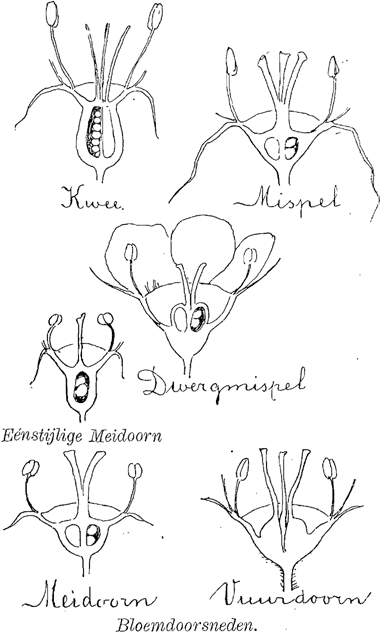 Kwee.
Mispel.
Dwergmispel
Eénstijlige Meidoorn
Meidoorn
Vuurdoorn
Bloemdoorsneden.